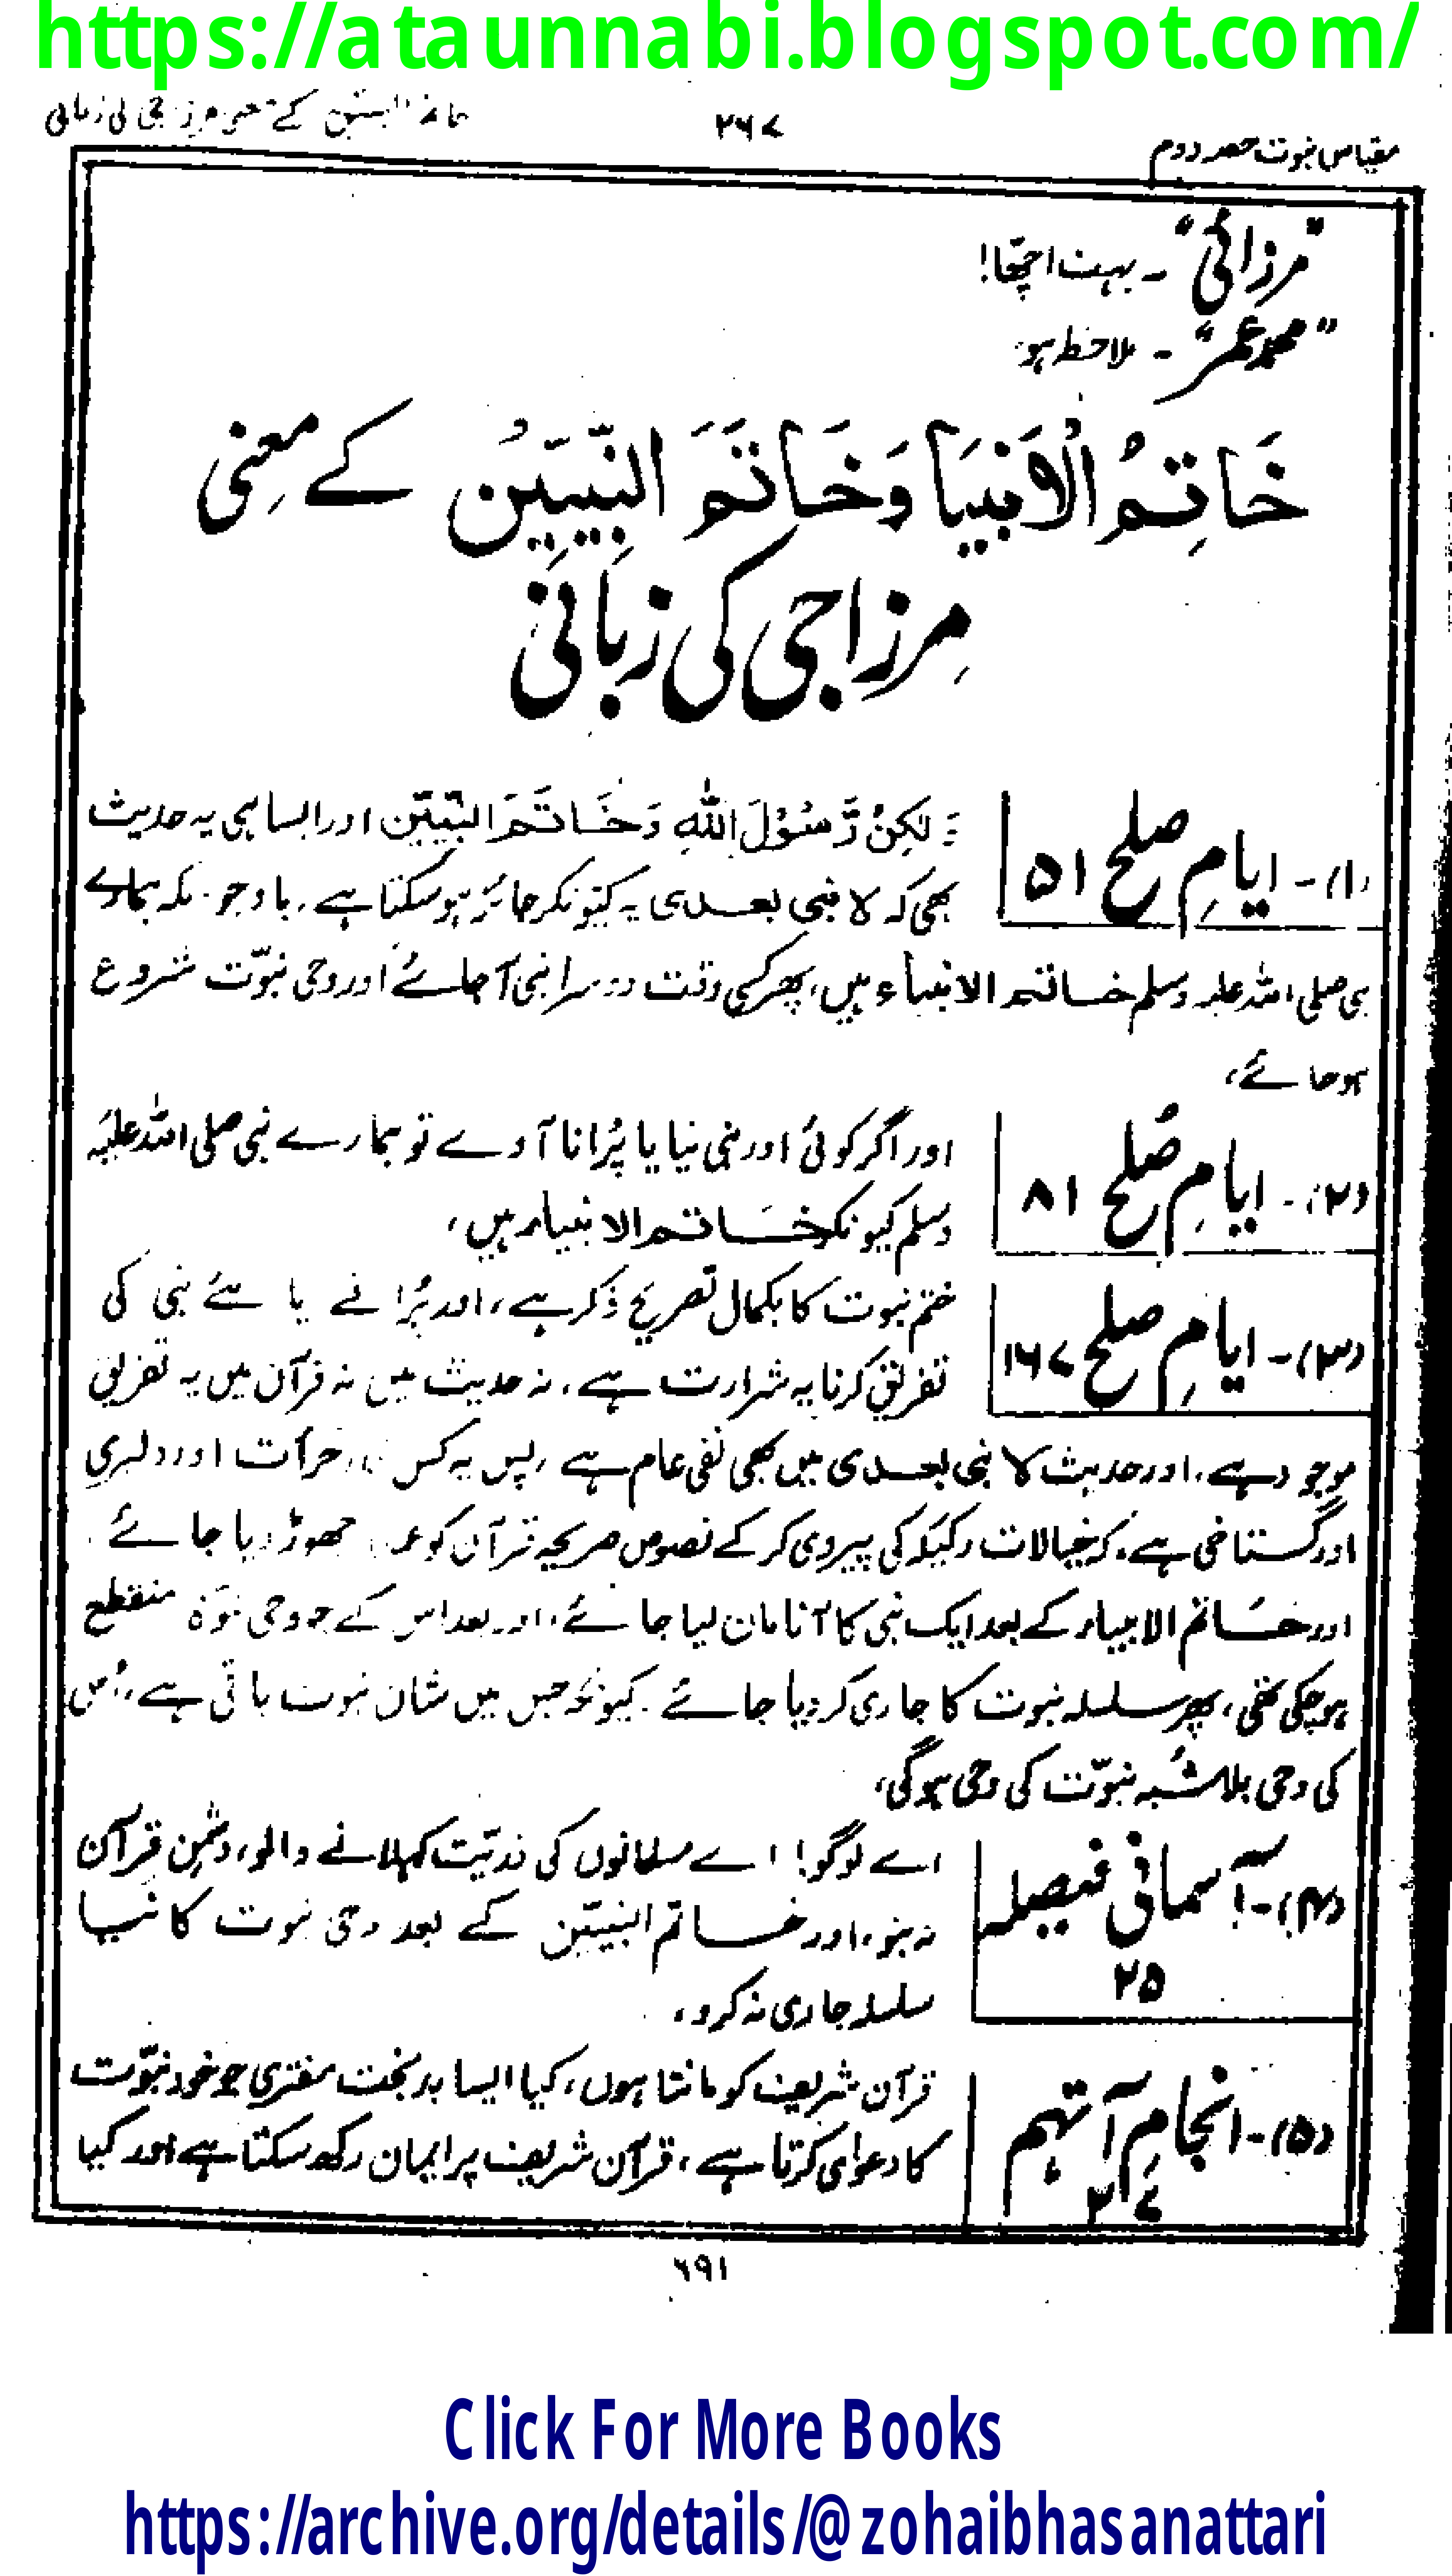 https://ataunnabi.blogspot.com/
مقیاس نبوت حصہ دوم
۲۶۷
کے معنی مرزا جی کی زبانی
"مرزائی" ۔ بہت اچھا!
"محمد عمر" ۔ ملاحظہ ہو:
خَاتِمُ الْاَنْبِيَا وَخَاتَمَ النَّبِيِّيْنَ کے معنی
مرزا جی کی زبانی
(۱)۔ ایامِ صلح ۵۱
وَلٰكِنْ رَّسُوْلَ اللهِ وَخَاتَمَ النَّبِيِّيْنَ اور ایسا ہی یہ حدیث
بھی کہ لا نبی بعدی یہ کیونکر جائز ہو سکتا ہے، باوجودیکہ ہمارے
نبی صلی اللہ علیہ وسلم خاتم الانبیاء ہیں، پھر کسی وقت دوسرا نبی آ جائے اور وحی نبوّت شروع
ہو جائے،
(۲)۔ ایامِ صُلح ۸۱
اور اگر کوئی اور نبی نیا یا پُرانا آوے تو ہمارے نبی صلی اللہ علیہ
وسلم کیونکر خاتم الانبیاء ہیں،
(۳)۔ ایامِ صلح ۱۶۷
ختم نبوت کا بکمال تصریح ذکر ہے، اور پُرانے یا نئے نبی کی
تفریق کرنا یہ شرارت ہے، نہ حدیث میں نہ قرآن میں یہ تفریق
موجود ہے، اور حدیث لا نبی بعدی میں بھی نفی عام ہے، پس یہ کس جرأت اور دلیری
اور گستاخی ہے، کہ خیالات رکیکہ کی پیروی کر کے نصوص صریحہ قرآن کو چھوڑ دیا جائے
اور خاتم الانبیاء کے بعد ایک نبی کا آنا مان لیا جائے، اور بعد اس کے جو وحی نبوۃ منقطع
ہو چکی تھی، پھر سلسلہ نبوت کا جاری کر دیا جائے۔ کیونکہ جس میں شان نبوت باقی ہے، اُس
کی وحی بلا شُبہ نبوّت کی وحی ہو گی،
(۴)۔ آسمانی فیصلہ ۲۵
اے لوگو! اے مسلمانوں کی ذریّت کہلانے والو، دشمنِ قرآن
نہ بنو، اور خاتم النبیّین کے بعد وحی نبوت کا نیا
سلسلہ جاری نہ کرو،
(۵)۔ انجامِ آتھم ۲۷
قرآن شریف کو مانتا ہوں، کیا ایسا بدبخت مفتری جو خود نبوّت
کا دعوٰی کرتا ہے، قرآن شریف پر ایمان رکھ سکتا ہے اور کیا
۶۹۱
Click For More Books
https://archive.org/details/@zohaibhasanattari